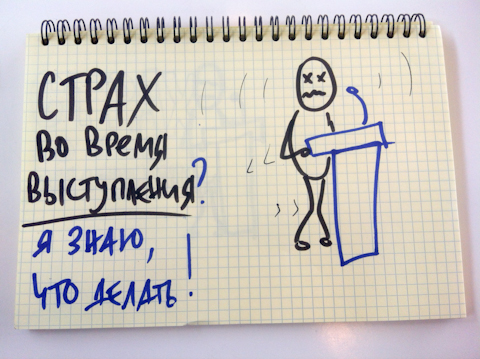 СТРАХ
ВО ВРЕМЯ
ВЫСТУПЛЕНИЯ?
Я ЗНАЮ,
ЧТО ДЕЛАТЬ!